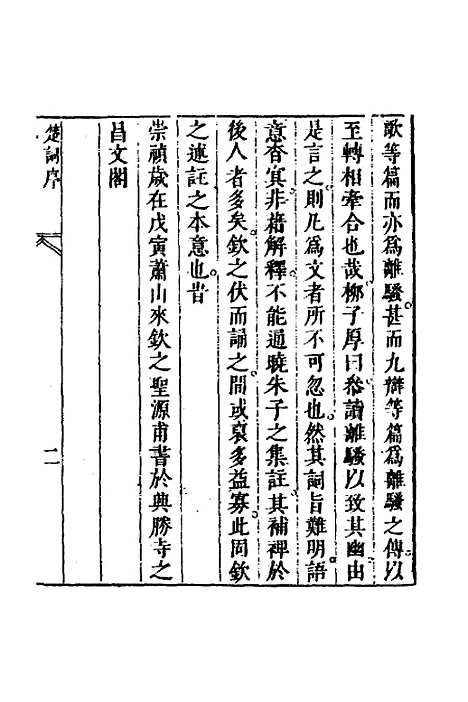 歌等篇而亦爲離騷甚而九辯等篇爲離騷之傳以
至轉相牽合也哉柳子厚曰參讀離騷以致其幽由
是言之則凡爲文者所不可忽也然其詞旨難明語
意杳冥非藉解釋不能通曉朱子之集註其補裨於
後人者多矣欽之伏而誦之間或裒多益寡此固欽
之述註之本意也昔
崇禎歲在戊寅蕭山來欽之聖源甫書於興勝寺之
昌文閣
楚詞序
二